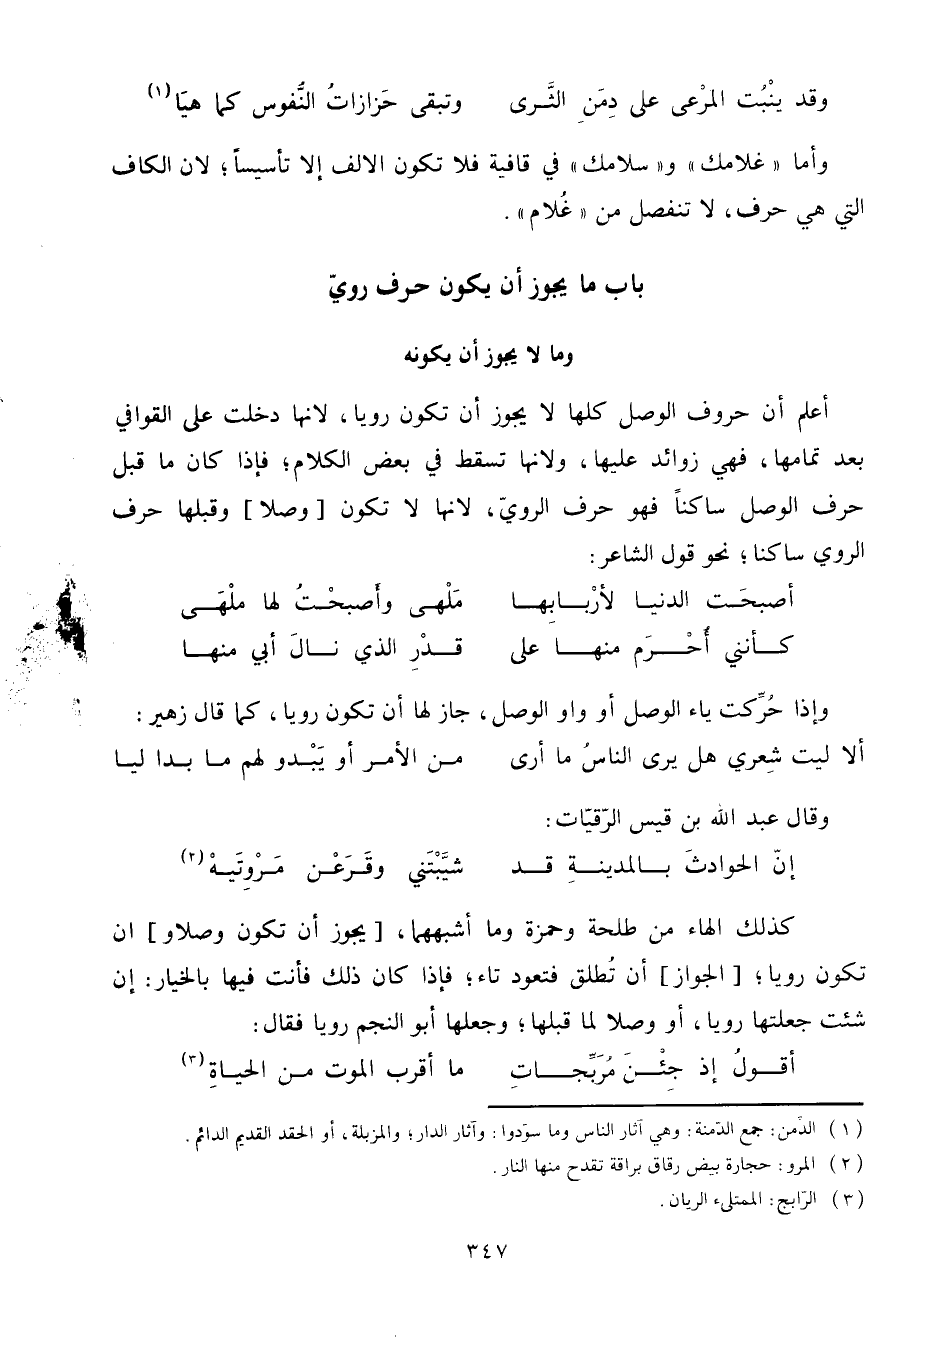 وقد ينْبُت المرْعى على دِمَنِ الثَّرى    وتبقى حَزازاتُ النُّفوس كما هيَا(١)
وأما « غلامك » و« سلامك » في قافية فلا تكون الالف إلا تأسيساً؛ لان الكاف
التي هي حرف، لا تنفصل من « غُلام » .
باب ما يجوز أن يكون حرف رويّ
وما لا يجوز أن يكونه
أعلم أن حروف الوصل كلها لا يجوز أن تكون رويا، لانها دخلت على القوافي
بعد تمامها، فهي زوائد عليها، ولانها تسقط في بعض الكلام؛ فإذا كان ما قبل
حرف الوصل ساكناً فهو حرف الرويّ، لانها لا تكون [ وصلا ] وقبلها حرف
الروي ساكنا؛ نحو قول الشاعر:
أصبحَت الدنيا لأرْبابِها    مَلْهى وأَصبحْتُ لها ملْهَى
كأنني أُحْرَم منها على    قدْرِ الذي نالَ أبي منها
وإذا حُرِّكت ياء الوصل أو واو الوصل، جاز لها أن تكون رويا، كما قال زهير:
ألا ليت شعري هل يرى الناسُ ما أرى    من الأمر أو يَبْدو لهم ما بدا ليا
وقال عبد الله بن قيس الرّقيّات:
إنّ الحوادثَ بالمدينةِ قد    شيَّبْتَني وقَرَعْن مَرْوتِيَهْ(٢)
كذلك الهاء من طلحة وحمزة وما أشبههما، [ يجوز أن تكون وصلاو ] ان
تكون رويا؛ [ الجواز ] أن تُطلق فتعود تاء؛ فإذا كان ذلك فأنت فيها بالخيار: إن
شئت جعلتها رويا، أو وصلا لما قبلها؛ وجعلها أبو النجم رويا فقال:
أقولُ إذ جِئْنَ مُرَبَّجاتِ    ما أقرب الموت من الحياةِ(٣)
(١) الدِّمن: جمع الدّمنة: وهي آثار الناس وما سوّدوا: وآثار الدار؛ والمزبلة، أو الحقد القديم الدائم.
(٢) المرو: حجارة بيض رقاق براقة تقدح منها النار.
(٣) الرّابج: الممتلىء الريان.
٣٤٧